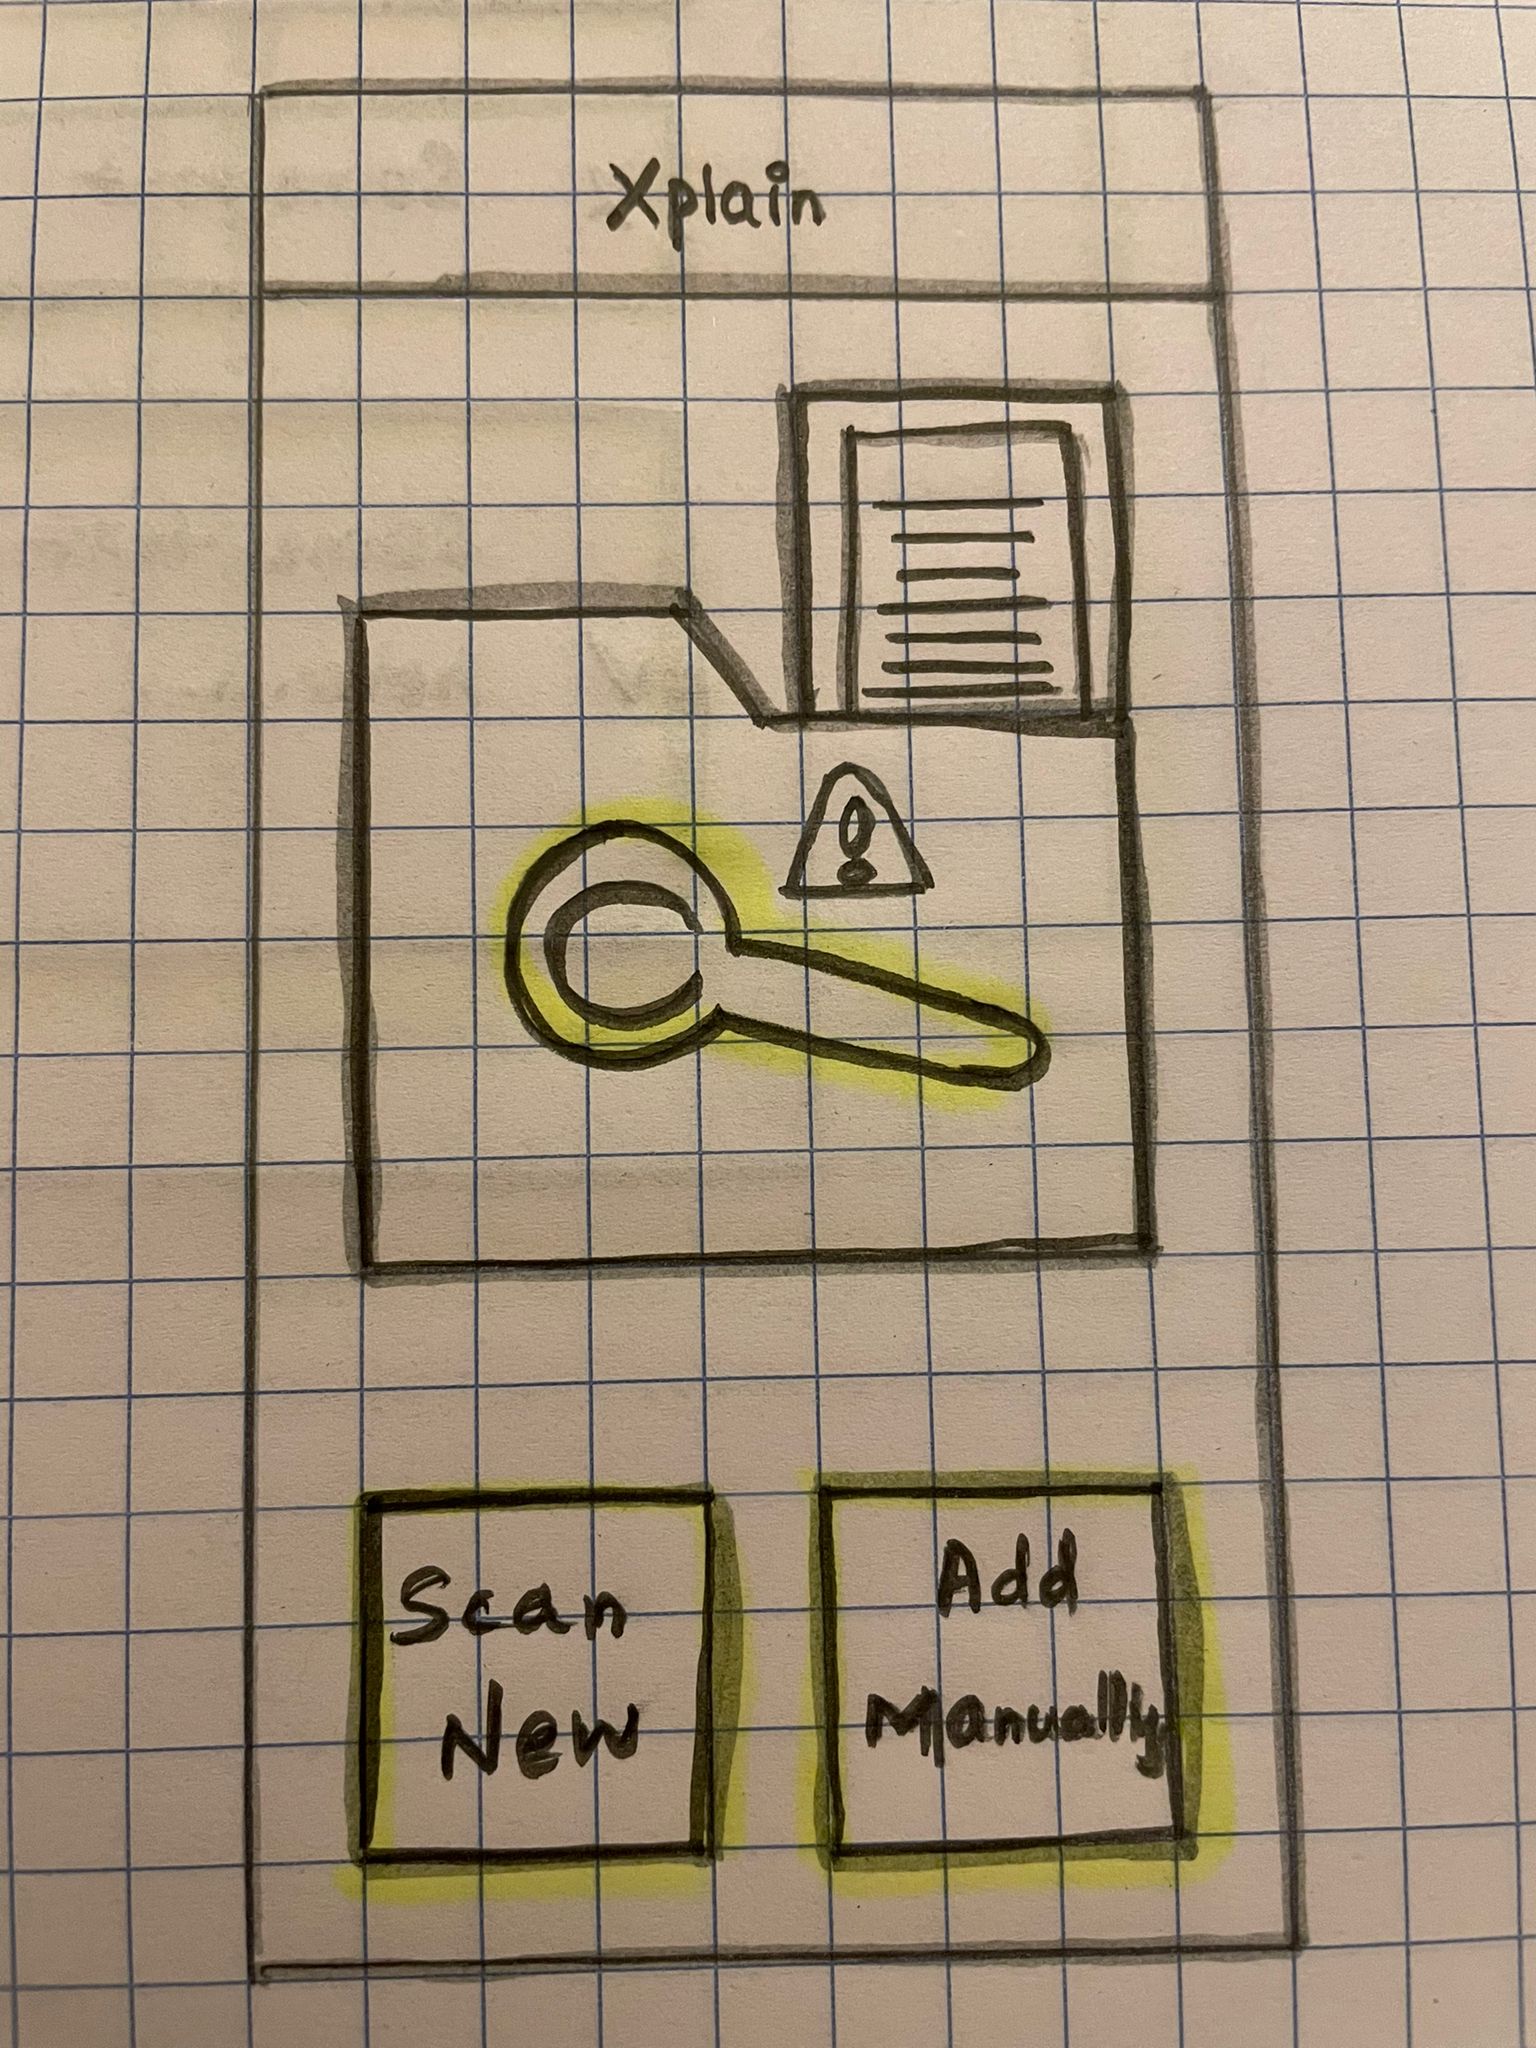 Xplain
!
Scan
New
Add
Manually